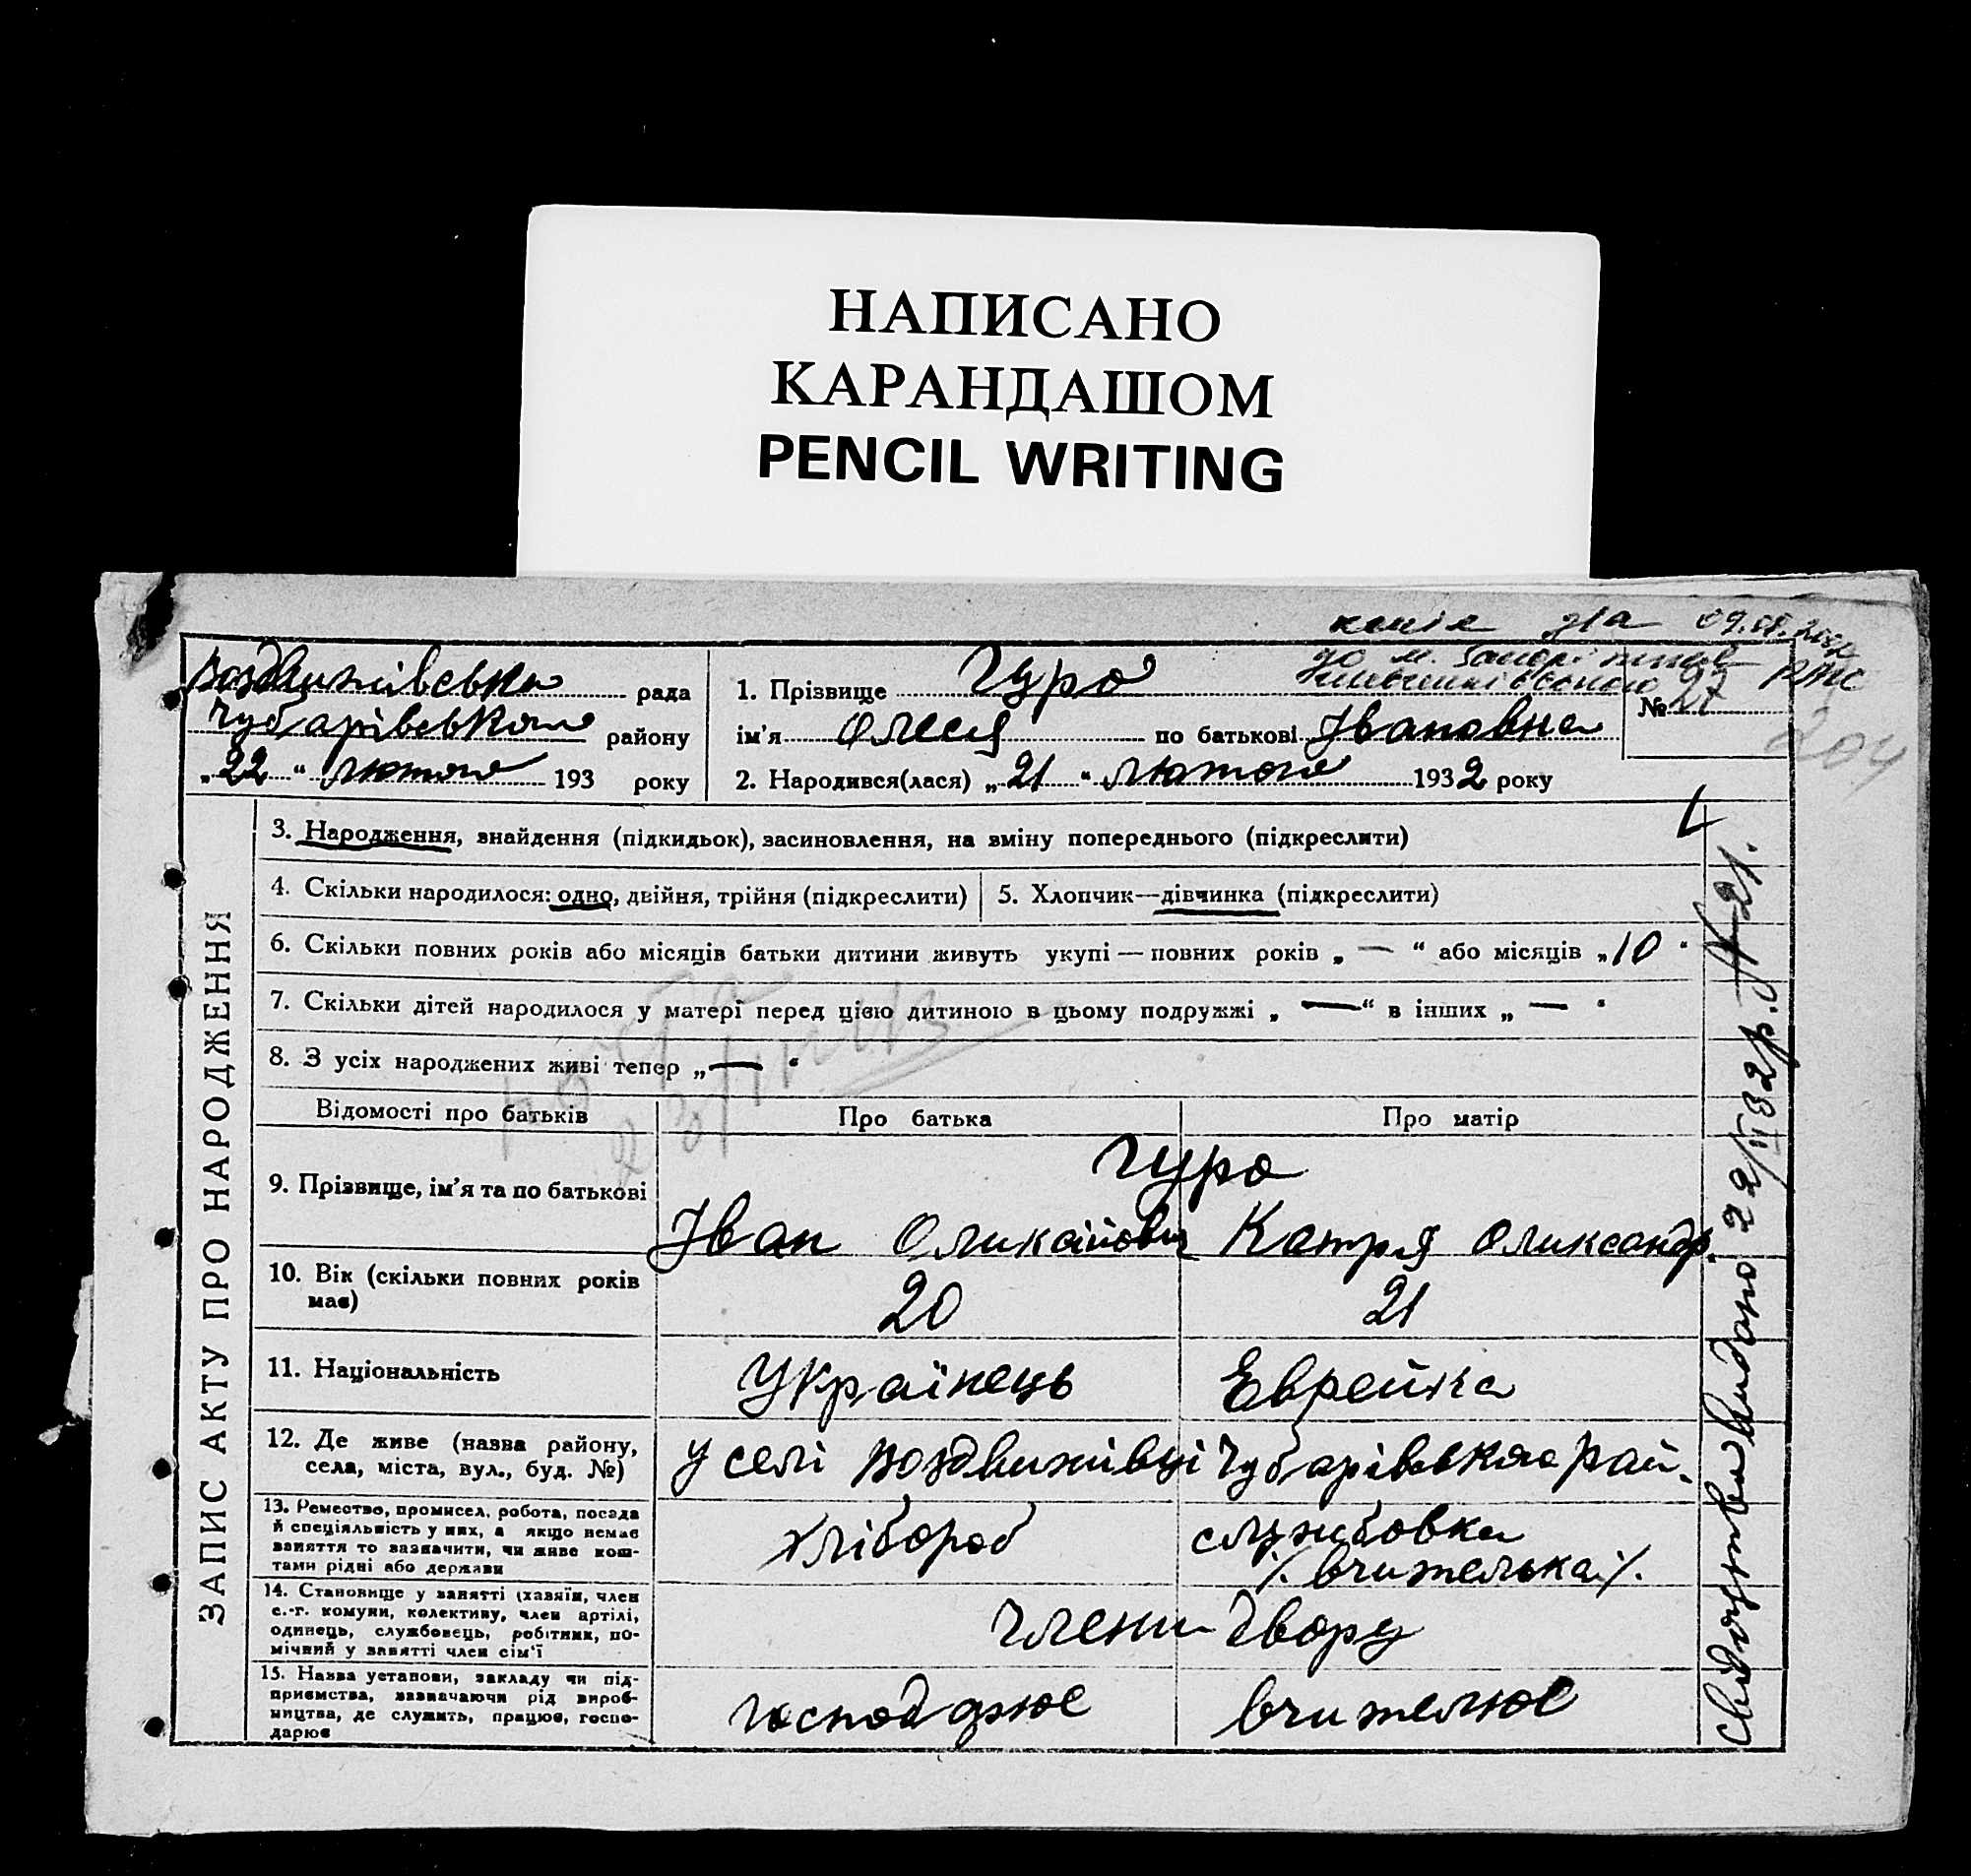 НАПИСАНО
КАРАНДАШОМ
PENCIL WRITING
копія д/а
Воздвижівська рада
Чубарівського району
„22“ лютого 193 року
1. Прізвище Гура
№ 27
РАГС
204
ім'я Олеся по батькові Івановна
2. Народився(лася) „21“ лютого 1932 року
ЗАПИС АКТУ ПРО НАРОДЖЕННЯ
3. Народження, знайдення (підкидьок), засиновлення, на зміну попереднього (підкреслити)
4. Скільки народилося: одно, двійня, трійня (підкреслити)
5. Хлопчик—дівчинка (підкреслити)
6. Скільки повних років або місяців батьки дитини живуть укупі — повних років „—“ або місяців „10“
7. Скільки дітей народилося у матері перед цією дитиною в цьому подружжі „—“ в інших „—“
8. З усіх народжених живі тепер „—“
Відомості про батьків
Про батька
Про матір
9. Прізвище, ім'я та по батькові
Гура
Іван
Катря Олександр.
10. Вік (скільки повних років
має)
20
21
11. Національність
Українець
Еврейка
12. Де живе (назва району,
села, міста, вул., буд. №)
у селі Воздвижівці Чубарівського рай.
13. Ремество, промисел, робота, посада
й спеціяльність у них, а якщо немає
заняття то зазначити, чи живе кош-
тами рідні або держави
хлібороб
службовка
/. вчителька ./.
14. Становище у занятті (хазяїн, член
с.-г. комуни, колективу, член артілі,
одинець, службовець, робітник, по-
мічний у занятті член сім'ї
Члени двору
15. Назва установи, закладу чи під-
приємства, зазначаючи рід вироб-
ництва, де служить, працює, госпо-
дарює
господарює
вчителює
Свідоцтво видано 22/II 32 р. № 21.